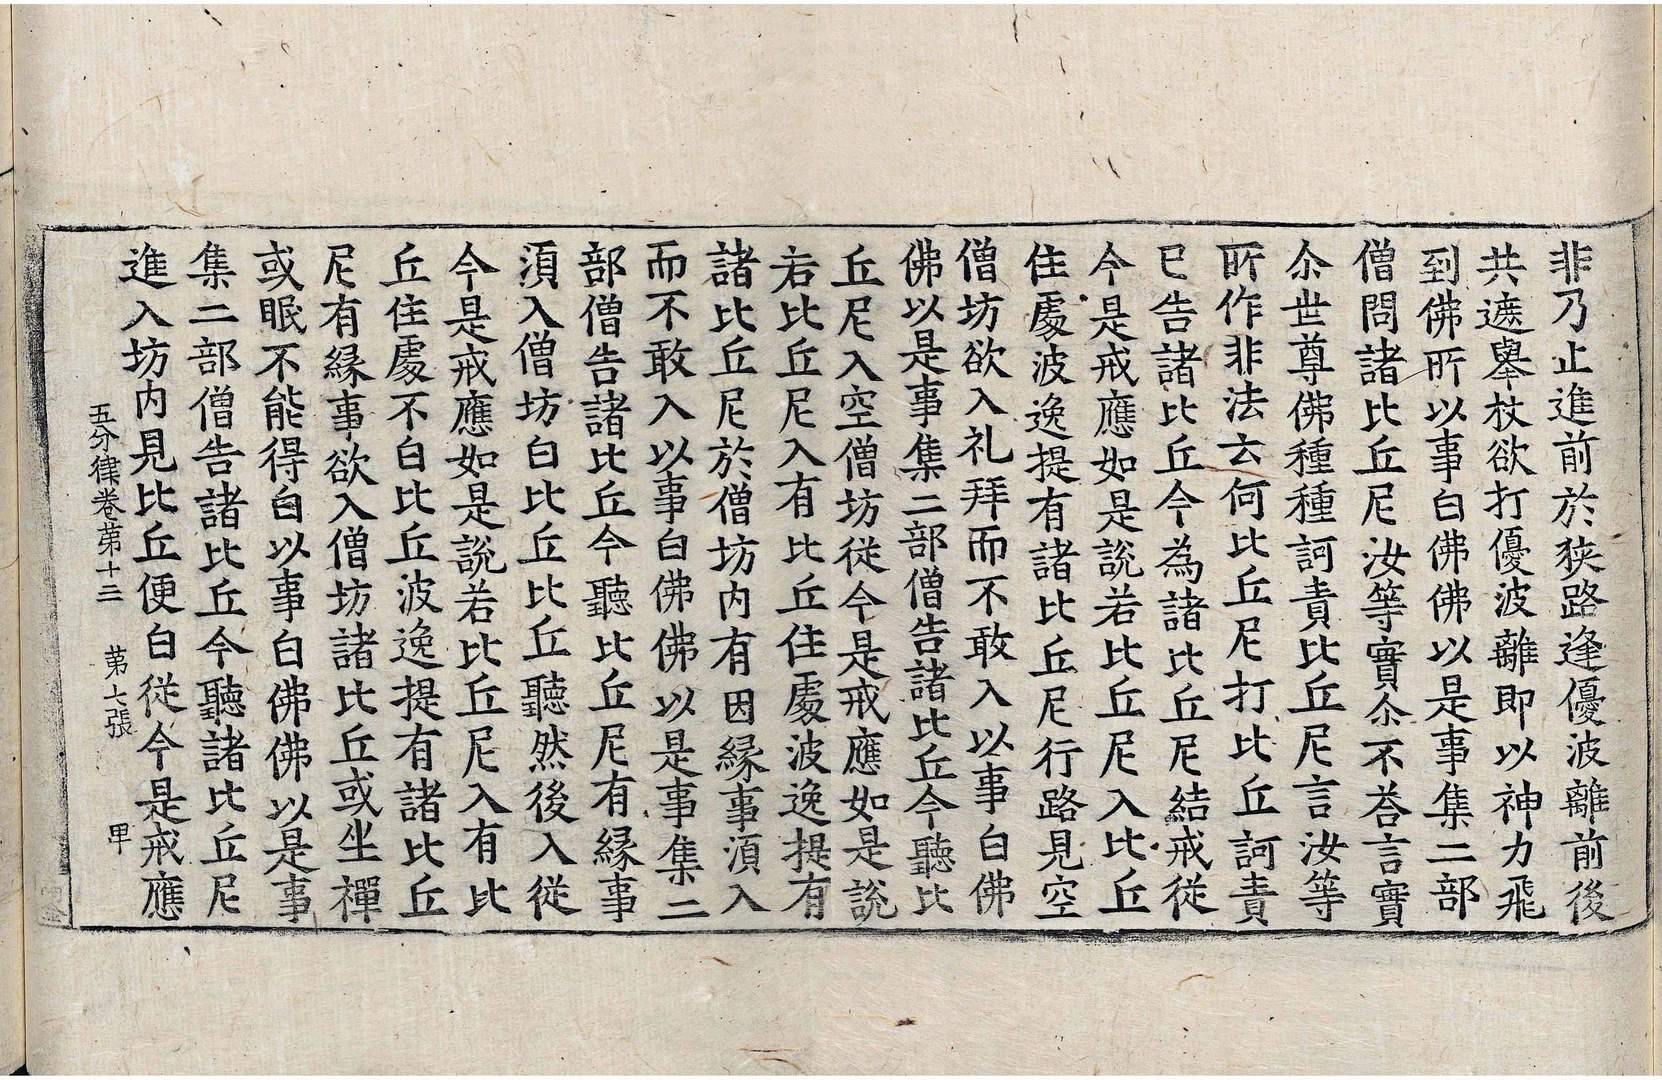 非乃止進前於狹路逢優波離前後
共遮舉杖欲打優波離即以神力飛
到佛所以事白佛佛以是事集二部
僧問諸比丘尼汝等實尒不荅言實
尒世尊佛種種訶責比丘尼言汝等
所作非法云何比丘尼打比丘訶責
已告諸比丘今為諸比丘尼結戒從
今是戒應如是說若比丘尼入比丘
住處波逸提有諸比丘尼行路見空
僧坊欲入礼拜而不敢入以事白佛
佛以是事集二部僧告諸比丘今聽比
丘尼入空僧坊從今是戒應如是說
若比丘尼入有比丘住處波逸提有
諸比丘尼於僧坊內有因緣事湏入
而不敢入以事白佛佛以是事集二
部僧告諸比丘今聽比丘尼有緣事
湏入僧坊白比丘比丘聽然後入從
今是戒應如是說若比丘尼入有比
丘住處不白比丘波逸提有諸比丘
尼有緣事欲入僧坊諸比丘或坐禪
或眠不能得白以事白佛佛以是事
集二部僧告諸比丘今聽諸比丘尼
進入坊內見比丘便白從今是戒應
五分律卷苐十三　苐七張　甲